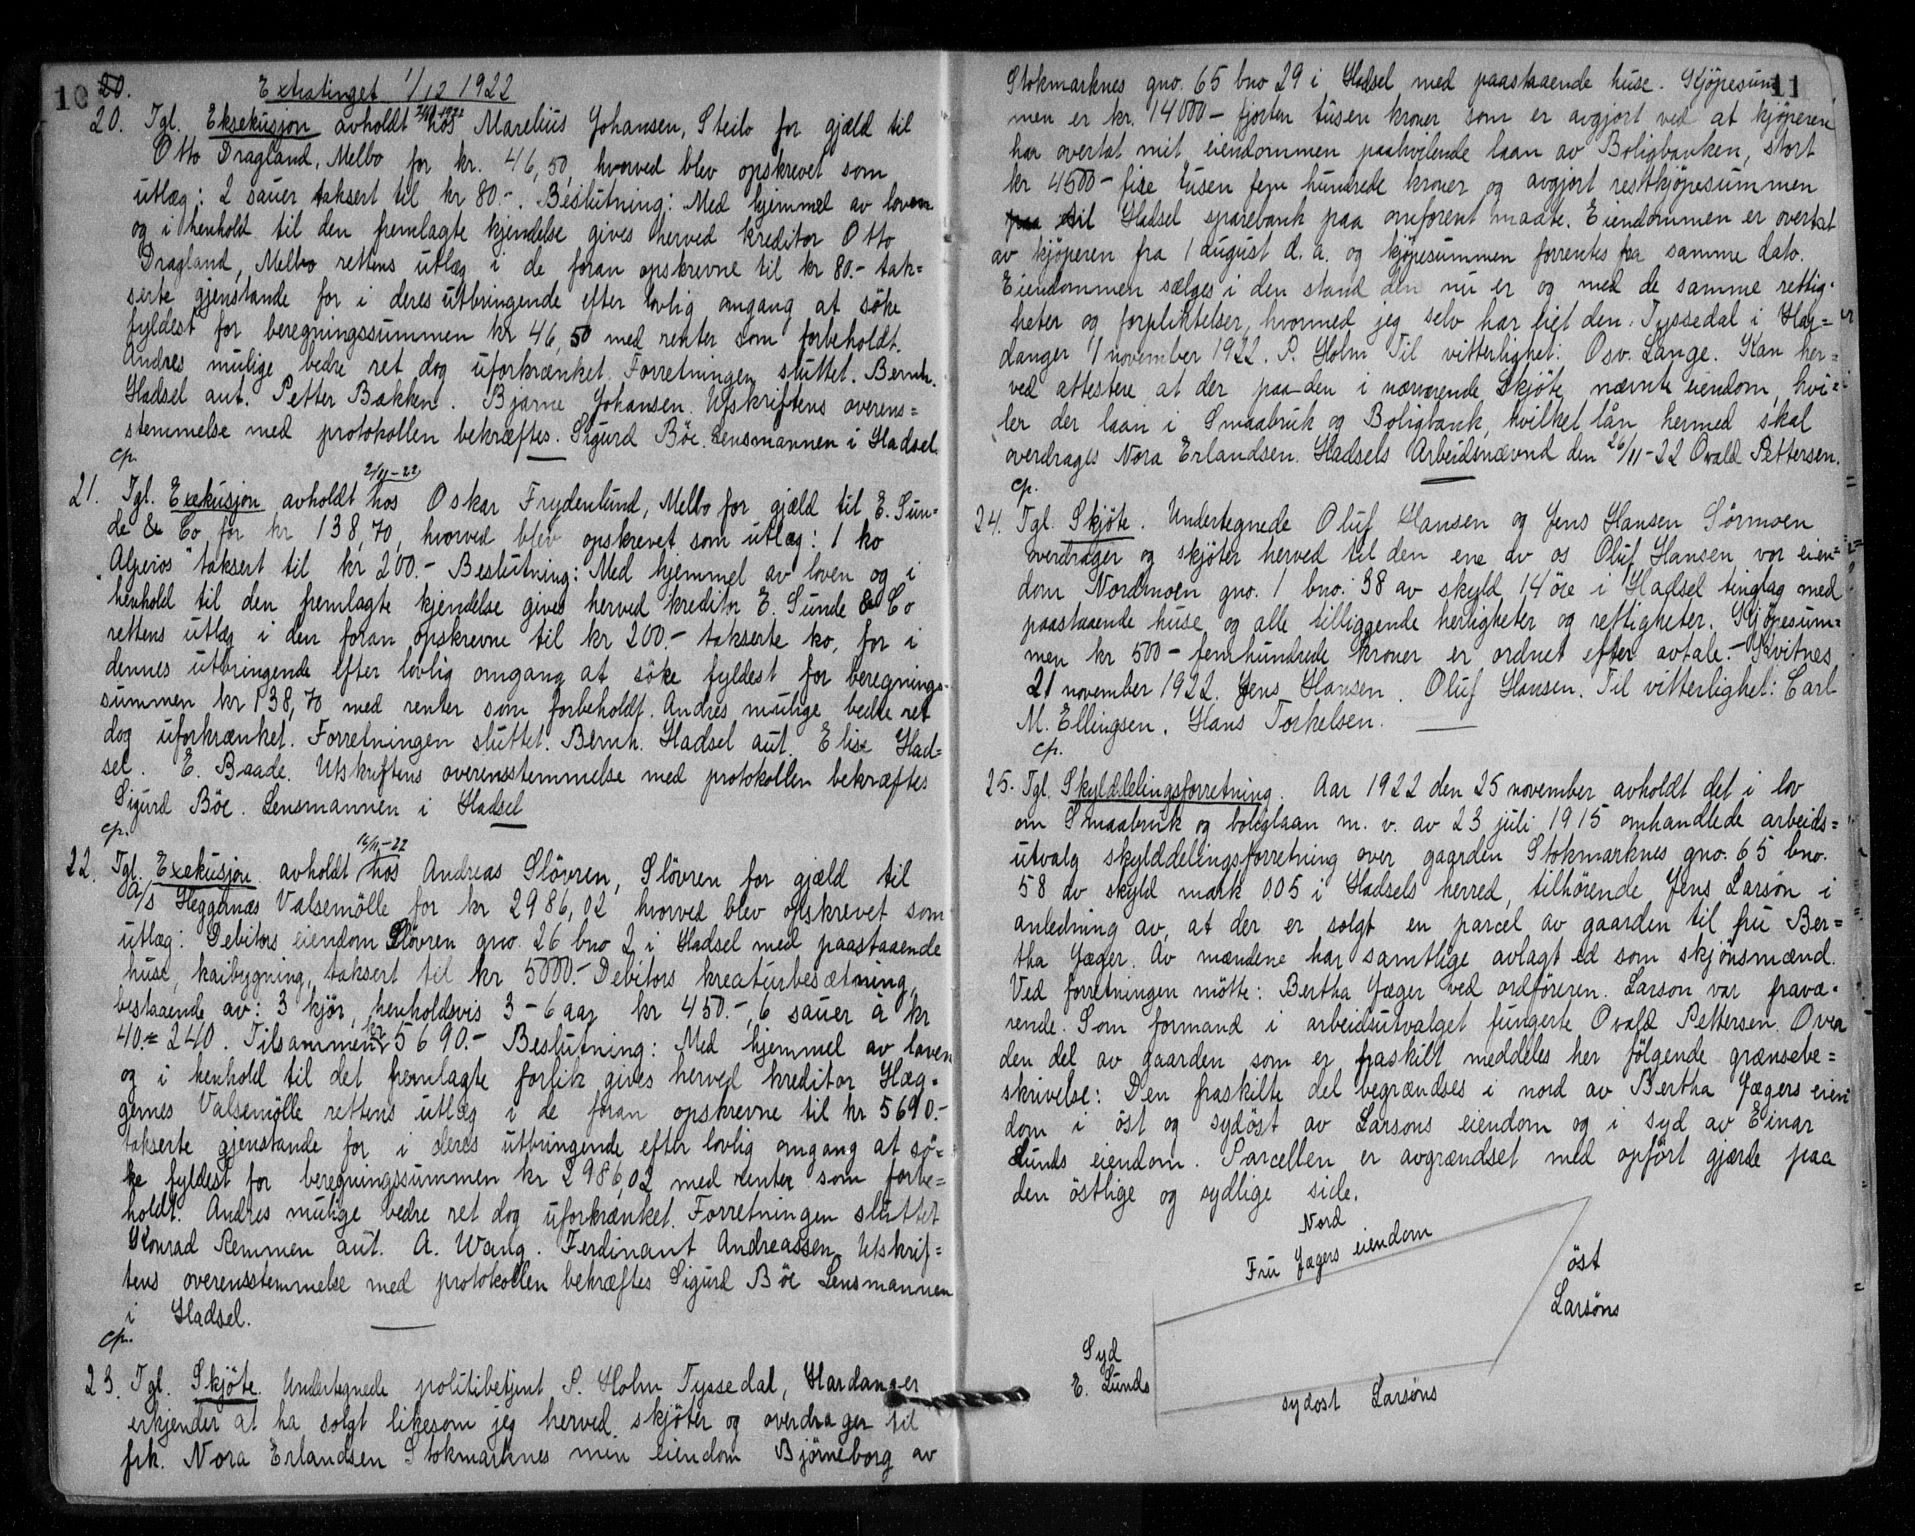 10
20.
Extratinget 1/12 1922
20. Tgl. Eksekusjon avholdt hos Marelius Johansen, Steilo for gjæld til
Otto Dragland, Melbo for kr. 46,50, hvorved blev opskrevet som
utlæg: 2 sauer taksert til kr 80.-. Beslutning: Med hjemmel av loven
og i henhold til den fremlagte kjendelse gives herved kreditor Otto
Dragland, Melbo rettens utlæg i de foran opskrevne til kr 80.- tak=
serte gjenstande for i deres utbringende efter lovlig omgang at söke
fyldest for beregningssummen kr 46,50 med renter som forbeholdt.
Andres mulige bedre ret dog uforkrænket. Forretningen sluttet. Bernh.
Hadsel aut. Petter Bakken. Bjarne Johansen. Utskriftens overens=
stemmelse med protokollen bekræftes. Sigurd Böe. Lensmannen i Hadsel.
cp.
2/11-22
21. Tgl. Exekusjon avholdt hos Oskar Frydenlund, Melbo for gjæld til E. Sun-
de & Co for kr 138,70, hvorved blev opskrevet som utlæg: 1 ko
"Alperos" taksert til kr 200.- Beslutning: Med hjemmel av loven og i
henhold til den fremlagte kjendelse gives herved kreditor E. Sunde & Co
rettens utlæg i den foran opskrevne til kr 200.- takserte ko, for i
dennes utbringende efter lovlig omgang at söke fyldest for beregnings-
summen kr 138,70 med renter som forbeholdt. Andres mulige bedre ret
dog uforkrænket. Forretningen sluttet. Bernh. Hadsel aut. Elise Had=
sel. E. Baade. Utskriftens overensstemmelse med protokollen bekræftes
Sigurd Böe. Lensmannen i Hadsel
cp.
16/11-22
22. Tgl. Exekusjon avholdt hos Andreas Slövren, Slövren for gjæld til
A/S Heggnæs Valsemölle for kr 2986,02 hvorved blev opskrevet som
utlæg: Debitors eiendom Slövren gno. 26 bno 2 i Hadsel med paastaaende
huse, kaibygning, taksert til kr 5000.- Debitors kreaturbesætning,
bestaaende av: 3 kjör, henholdsvis 3-6 aar kr 450.-, 6 sauer à kr
40.= 240. Tilsammen kr 5690.- Beslutning: Med hjemmel av loven
og i henhold til det fremlagte forlik gives herved kreditor Hæg-
gernes Valsemölle rettens utlæg i de foran opskrevne til kr 5690.-
takserte gjenstande for i deres utbringende efter lovlig omgang at sö=
ke fyldest for beregningssummen kr 2986,02 med renter som forbe=
holdt. Andres mulige bedre ret dog uforkrænket. Forretningen sluttet
Konrad Remmen aut. A. Wang. Ferdinant Andreassen. Utskrif=
tens overensstemmelse med protokollen bekræftes Sigurd Böe Lensmannen
i Hadsel.
cp.
23. Tgl. Skjöte. Undertegnede politibetjent P. Holm Tyssedal, Hardanger
erkjender at ha solgt likesom jeg herved skjöter og overdrager til
frk. Nora Erlandsen Stokmarknes min eiendom Bjørneborg av
11
Stokmarknes gno. 65 bno 29 i Hadsel med paastaaende huse. Kjöpesum
men er kr. 14000- fjorten tusen kroner som er avgjort ved at kjöperen
har overtat mit eiendommen paahvilende laan av Boligbanken, stort
kr 4500- fire tusen fem hundrede kroner og avgjort restkjöpesummen
paa til Hadsel sparebank paa omforent maate. Eiendommen er overtat
av kjöperen fra 1 august d. a. og kjöpesummen forrentes fra samme dato.
Eiendommen sælges i den stand den nu er og med de samme rettig-
heter og forpliktelser, hvormed jeg selv har eiet den. Tyssedal i Har=
danger 1 november 1922. P. Holm Til vitterlighet: Osv. Lange. Kan her=
ved attestere at der paa den i nærværende Skjöte nævnte eiendom, hvi=
ler der laan i Smaabruk og Boligbank, hvilket lån hermed skal
overdrages Nora Erlandsen. Hadsels Arbeidsnævnd den 26/11-22 Ovald Pettersen.
cp.
24. Tgl. Skjöte. Undertegnede Oluf Hansen og Jens Hansen Sörmoen
overdrager og skjöter herved til den ene av os Oluf Hansen vor eien=
dom Nordmoen gno. 1 bno: 38 av skyld 14 öre i Hadsel tinglag med
paastaaende huse og alle tilliggende herligheter og rettigheter. Kjöpesum=
men kr 500- femhundrede kroner er ordnet efter avtale.- Kvitnes
21 november 1922. Jens Hansen. Oluf Hansen. Til vitterlighet: Carl
M. Ellingsen. Hans Torkelsen.
cp.
25. Tgl. Skylddelingsforretning. Aar 1922 den 25 november avholdt det i lov
om Smaabruk og boliglaan m. v. av 23 juli 1915 omhandlede arbeids=
utvalg skylddelingsforretning over gaarden Stokmarknes gno. 65 bno.
58 av skyld mark 0.05 i Hadsels herred, tilhörende Jens Larsön i
anledning av, at der er solgt en parcel av gaarden til fru Ber=
tha Jæger. Av mændene har samtlige avlagt ed som skjönsmænd.
Ved forretningen mötte: Bertha Jæger ved ordföreren. Larson var fravæ-
rende. Som formand i arbeidsutvalget fungerte Ovald Pettersen. Over
den del av gaarden som er fraskilt meddeles her fölgende grænsebe=
skrivelse: Den fraskilte del begrændses i nord av Bertha Jægers eien
dom i öst og sydöst av Larsons eiendom og i syd av Einar
Lunds eiendom. Parcellen er avgrændset med opfört gjærde paa
den östlige og sydlige side.
Nord
Fru Jægers eiendom
öst
Larsöns
Syd
E. Lunds
sydost Larsöns